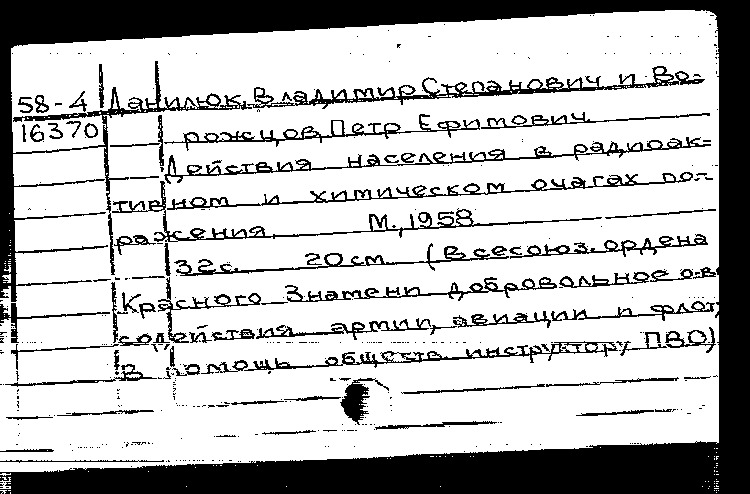 58-4 Данилюк, Владимир Степанович и Во-
16370 рожцов, Петр Ефимович.
Действия населения в радиоак-
тивном и химическом очагах по-
ражения. М., 1958
32с. 20см. (Всесоюз. ордена
Красного Знамени добровольное о-во
содействия армии, авиации и флоту
В помощь обществ. инструктору ПВО)